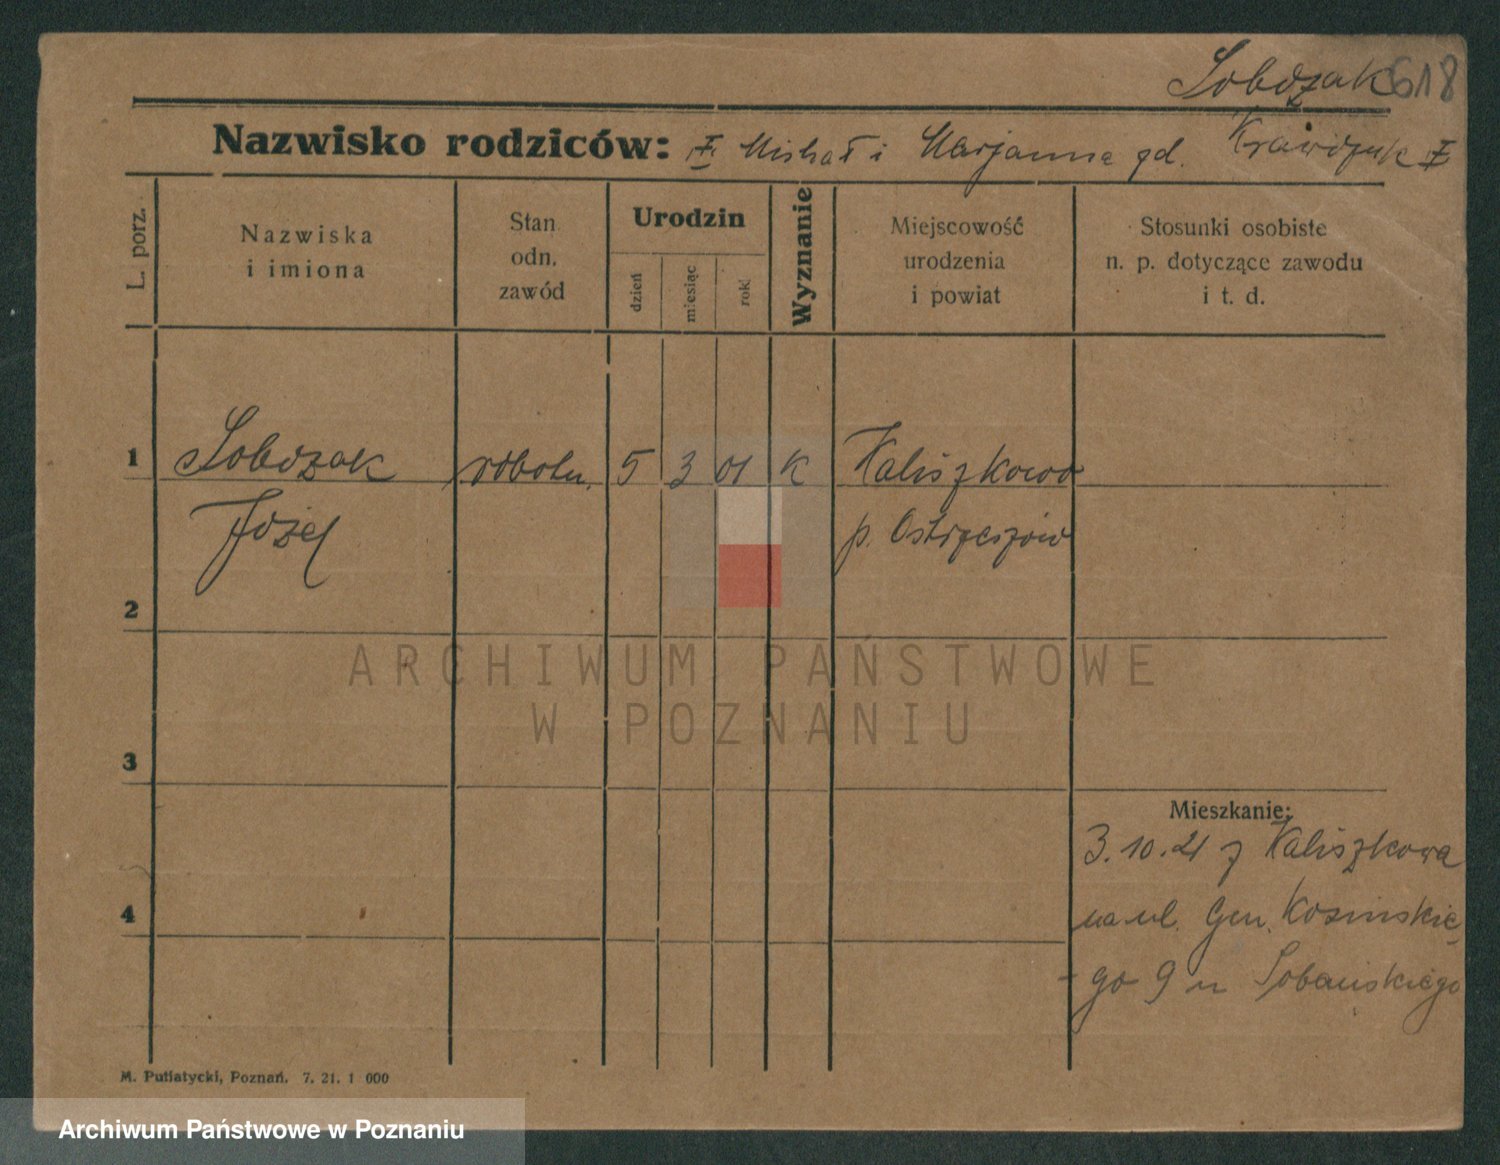 Sobczak 618
Nazwisko rodziców: Michał i Marjanna zd. Krawczyk
L. porz.
Nazwiska
i imiona
Stan
odn.
zawód
Urodzin
dzień
miesiąc
rok
Wyznanie
Miejscowość
urodzenia
i powiat
Stosunki osobiste
n. p. dotyczące zawodu
i t. d.
1 Sobczak robotn. 5 3 01 K Kaliszkowo
Józef p. Ostrzeszów
2
ARCHIWUM PAŃSTWOWE
W POZNANIU
3
Mieszkanie:
3.10.21 z Kaliszkowa
4
na ul. Gen. Kosińskie
-go 9 u Sobańskiego
M. Putiatycki, Poznań. 7. 21. 1 000
Archiwum Państwowe w Poznaniu